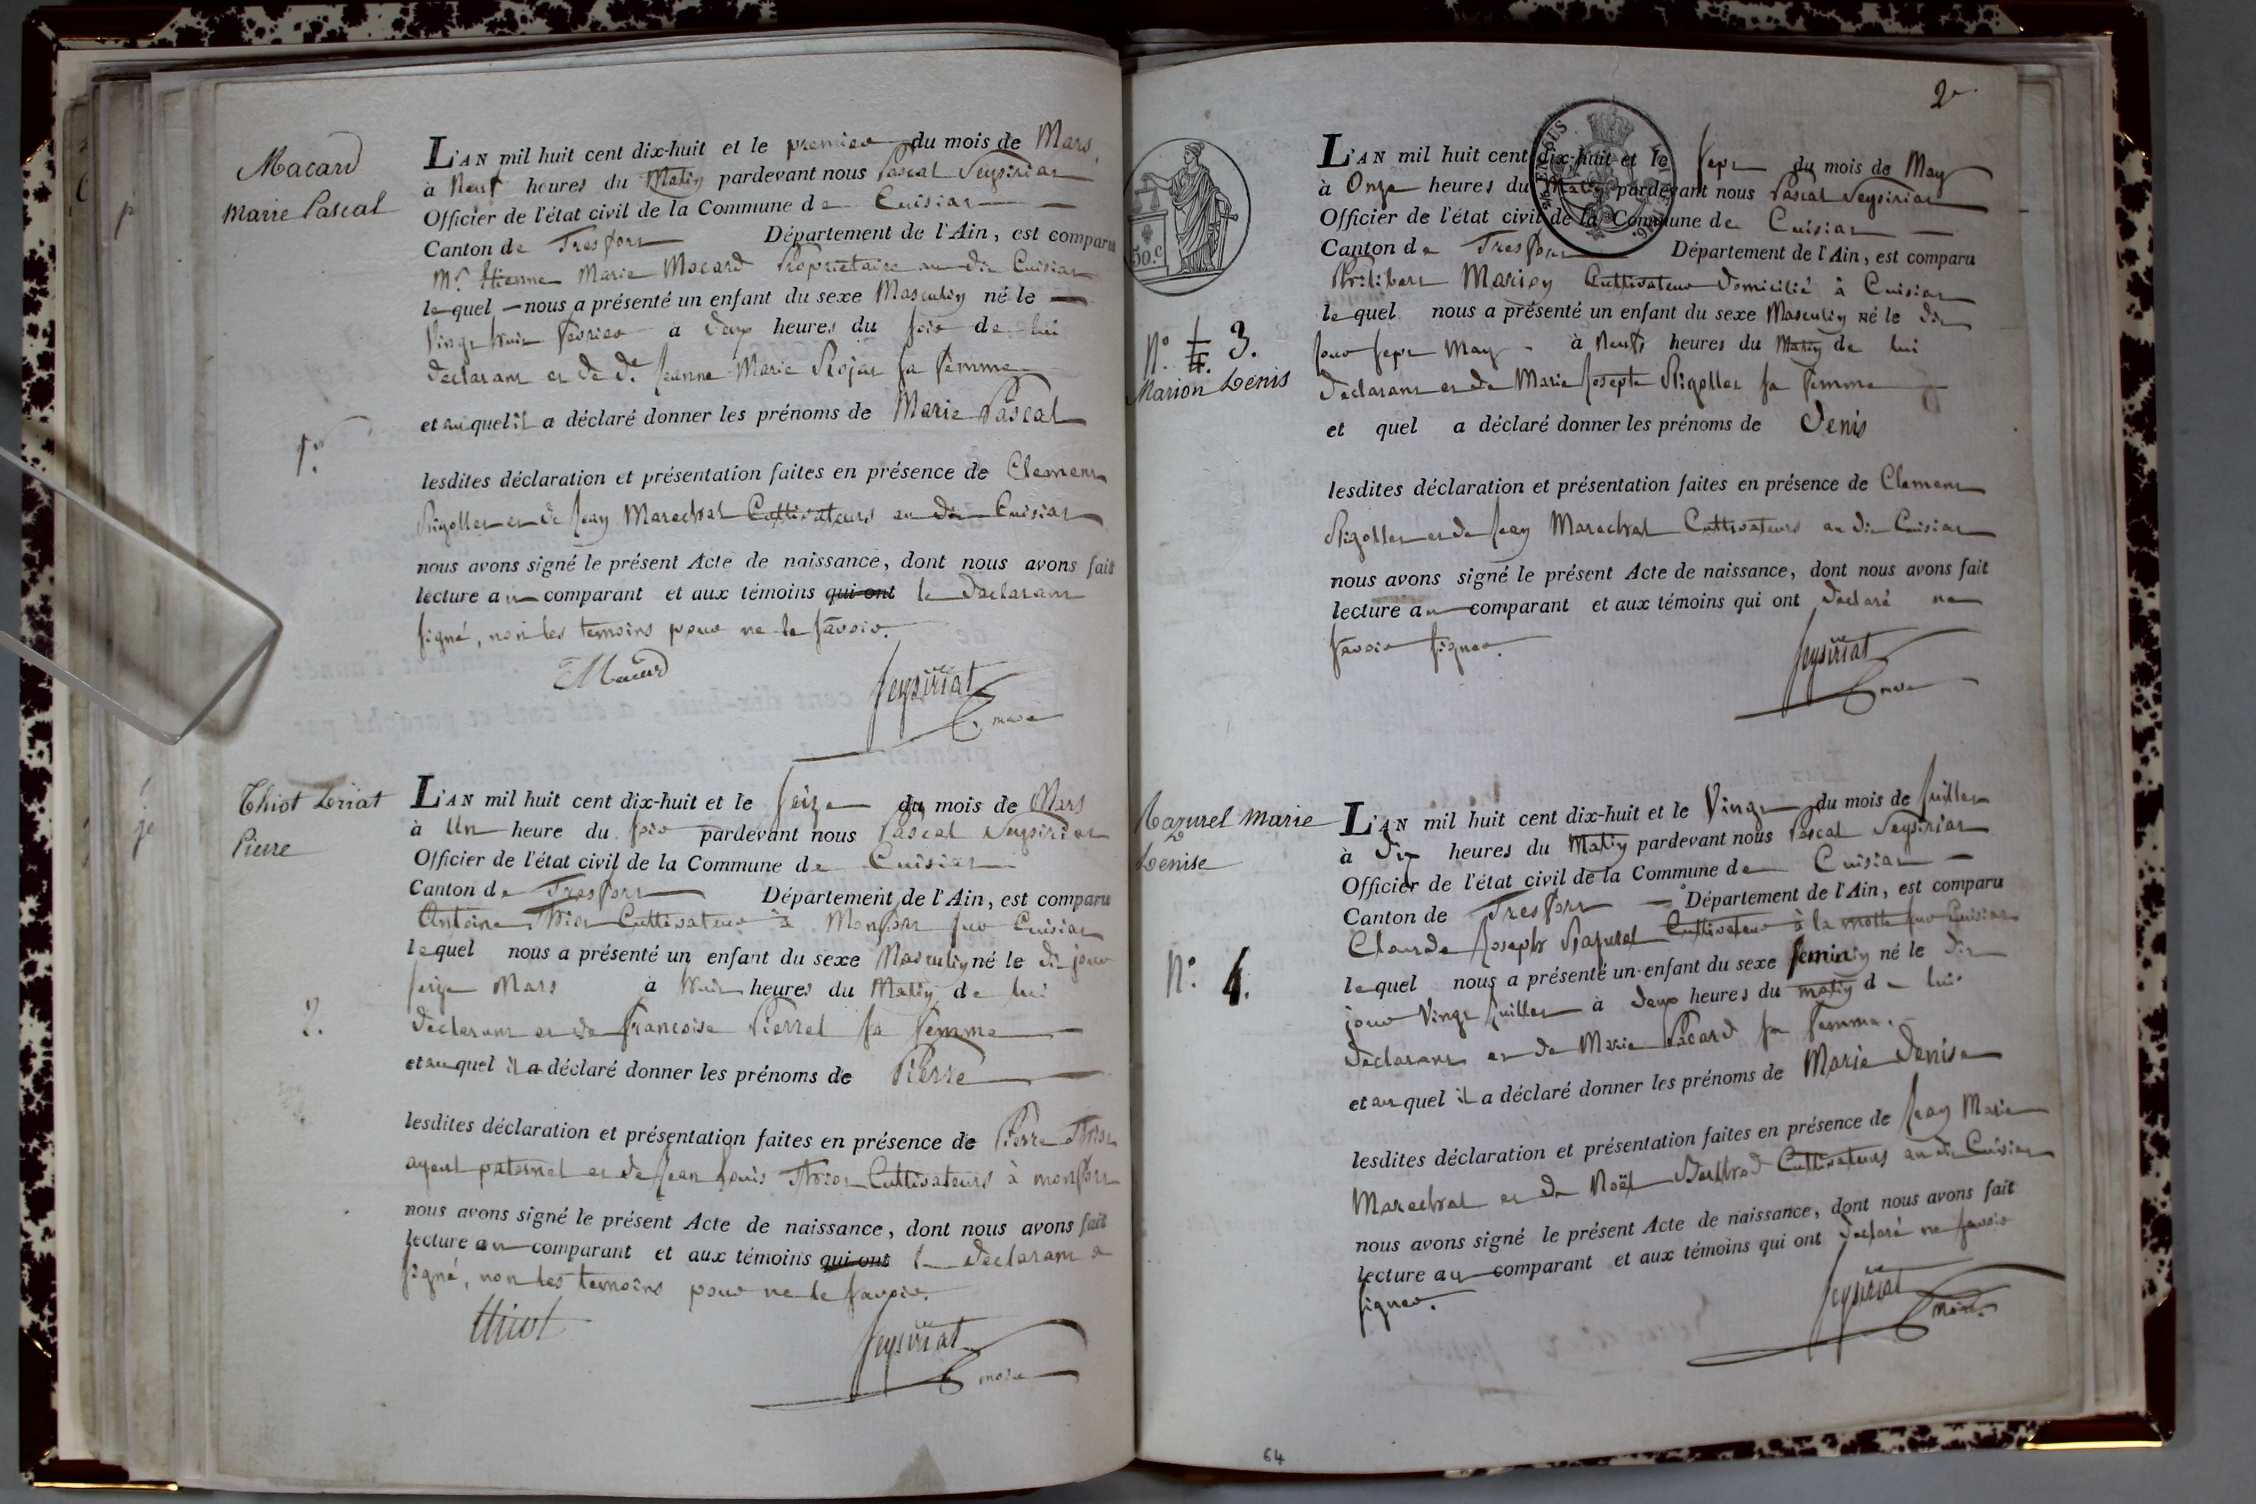 Macard
Marie Pascal
1er
L'AN mil huit cent dix-huit et le premier du mois de Mars
à Neuf heures du Matin pardevant nous Pascal Seysiriat
Officier de l'état civil de la Commune de Cuisiat
Canton de Tresfort Département de l'Ain, est comparu
Mr. Etienne Marie Macard Propriétaire au dit Cuisiat
lequel nous a présenté un enfant du sexe Masculin né le
Vingt huit février à deux heures du soir de lui
déclarant et de de. Jeanne Marie Rojat sa femme
et auquel il a déclaré donner les prénoms de Marie Pascal
lesdites déclaration et présentation faites en présence de Clement
Rigollet et de Jean Marechal Cultivateurs au dit Cuisiat
nous avons signé le présent Acte de naissance, dont nous avons fait
lecture au comparant et aux témoins qui ont le declarant
signé, non les temoins pour ne le savoir.
Macard
Seysiriat
maire
Thiot Loriat
Pierre
2.
L'AN mil huit cent dix-huit et le seize du mois de Mars
à Un heure du soir pardevant nous Pascal Seysiriat
Officier de l'état civil de la Commune de Cuisiat
Canton de Tresfort Département de l'Ain, est comparu
Antoine Thiot Cultivateur à Monfort sur Cuisiat
lequel nous a présenté un enfant du sexe Masculin né le dit jour
seize Mars à huit heures du Matin de lui
déclarant et de françoise Pierrel sa femme
et auquel il a déclaré donner les prénoms de Pierre
lesdites déclaration et présentation faites en présence de Pierre Thiot
ayeul paternel et de Jean Louis Thiot Cultivateurs à monfort
nous avons signé le présent Acte de naissance, dont nous avons fait
lecture au comparant et aux témoins qui ont le declarant a
signé, non les temoins pour ne le savoir.
thiot
Seysiriat
maire
2e
50. c
No. 3.
Marion Denis
L'AN mil huit cent dix-huit et le sept du mois de May
à Onze heures du Matin pardevant nous Pascal Seysiriat
Officier de l'état civil de la Commune de Cuisiat
Canton de Tresfort Département de l'Ain, est comparu
Philibert Marion Cultivateur domicilié à Cuisiat
lequel nous a présenté un enfant du sexe Masculin né le dit
jour sept May à Neuf heures du Matin de lui
déclarant et de Marie Josephe Rigollet sa femme
et quel a déclaré donner les prénoms de Denis
lesdites déclaration et présentation faites en présence de Clement
Rigollet et de Jean Marechal Cultivateurs au dit Cuisiat
nous avons signé le présent Acte de naissance, dont nous avons fait
lecture au comparant et aux témoins qui ont déclaré ne
savoir signer.
Seysiriat
maire
Razurel Marie
Denise
No. 4.
L'AN mil huit cent dix-huit et le Vingt du mois de Juillet
à Dix heures du Matin pardevant nous Pascal Seysiriat
Officier de l'état civil de la Commune de Cuisiat
Canton de Tresfort Département de l'Ain, est comparu
Claude Joseph Razurel Cultivateur à la motte sur Cuisiat
lequel nous a présenté un enfant du sexe feminin né le dit
jour Vingt Juillet à deux heures du matin de lui
déclarant et de Marie Pacard sa femme.
et auquel il a déclaré donner les prénoms de Marie Denise
lesdites déclaration et présentation faites en présence de Jean Marie
Marechal et de Noël Cultivateurs au dit Cuisiat
nous avons signé le présent Acte de naissance, dont nous avons fait
lecture au comparant et aux témoins qui ont déclaré ne savoir
signer.
Seysiriat
maire
64